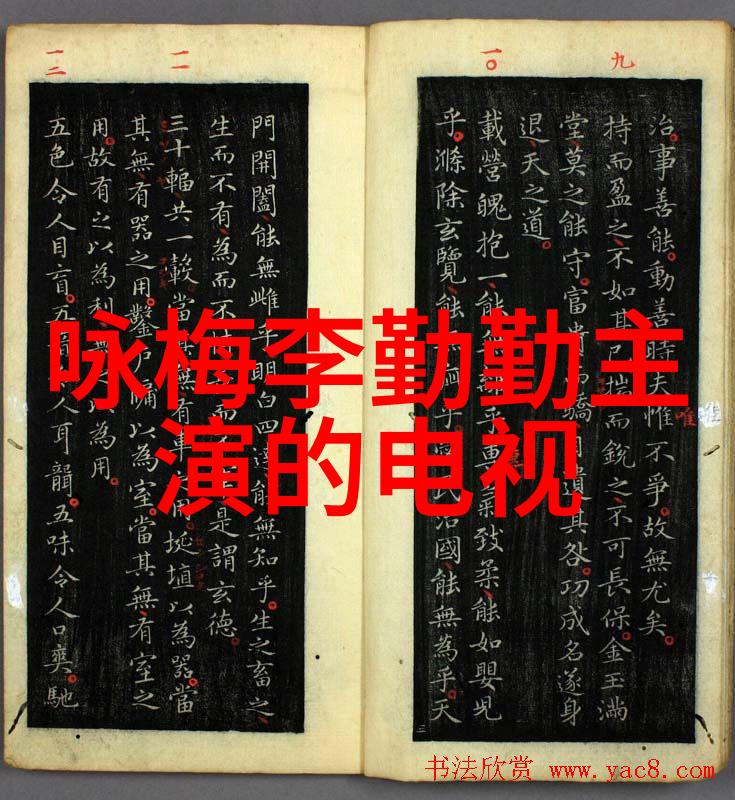 九
一〇
一一
一二
治。事善能。動善時。夫惟不爭。故無尤矣。
唯
持而盈之。不如其已。揣而銳之。不可長保。金玉滿
堂。莫之能守。富貴而驕。自遺其咎。功成名遂身
退。天之道。
載營魄抱一。能無離乎。專氣致柔。能如嬰兒
乎。滌除玄覽。能乎。民治國。能無為乎。天
門開闔。能無雌乎。明白四達。能無知乎。生之畜之。
生而不有。為而不而不是謂玄德。
三十輻。共一轂。當其無。有車用。挻埴以為器。當
其無。有器之用。鑿戶牖以為室。當其無。有室之
用。故有之以為利。以為用。
五色令人目盲。五人耳聾。五味令人口爽。馳
咏梅李勤勤主
演的电视
书法欣赏 www.yac8.com